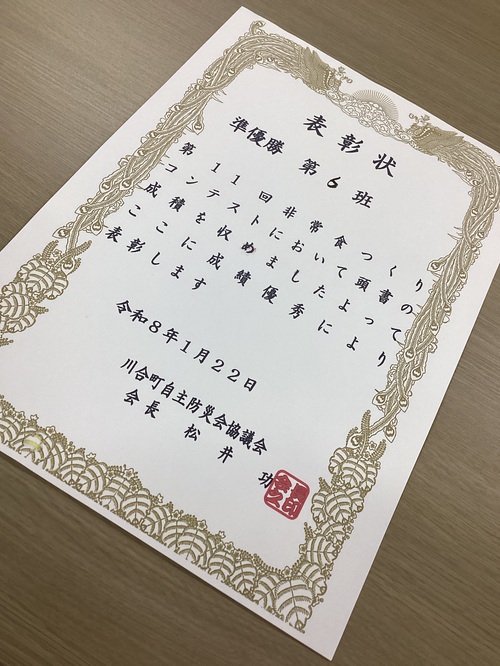 表彰状
準優勝 第6班
第11回非常食つくり
コンテストにおいて頭書の
成績を収めましたよって
ここに成績優秀により
表彰します
令和8年1月22日
川合町自主防災会協議会
会長 松井 功